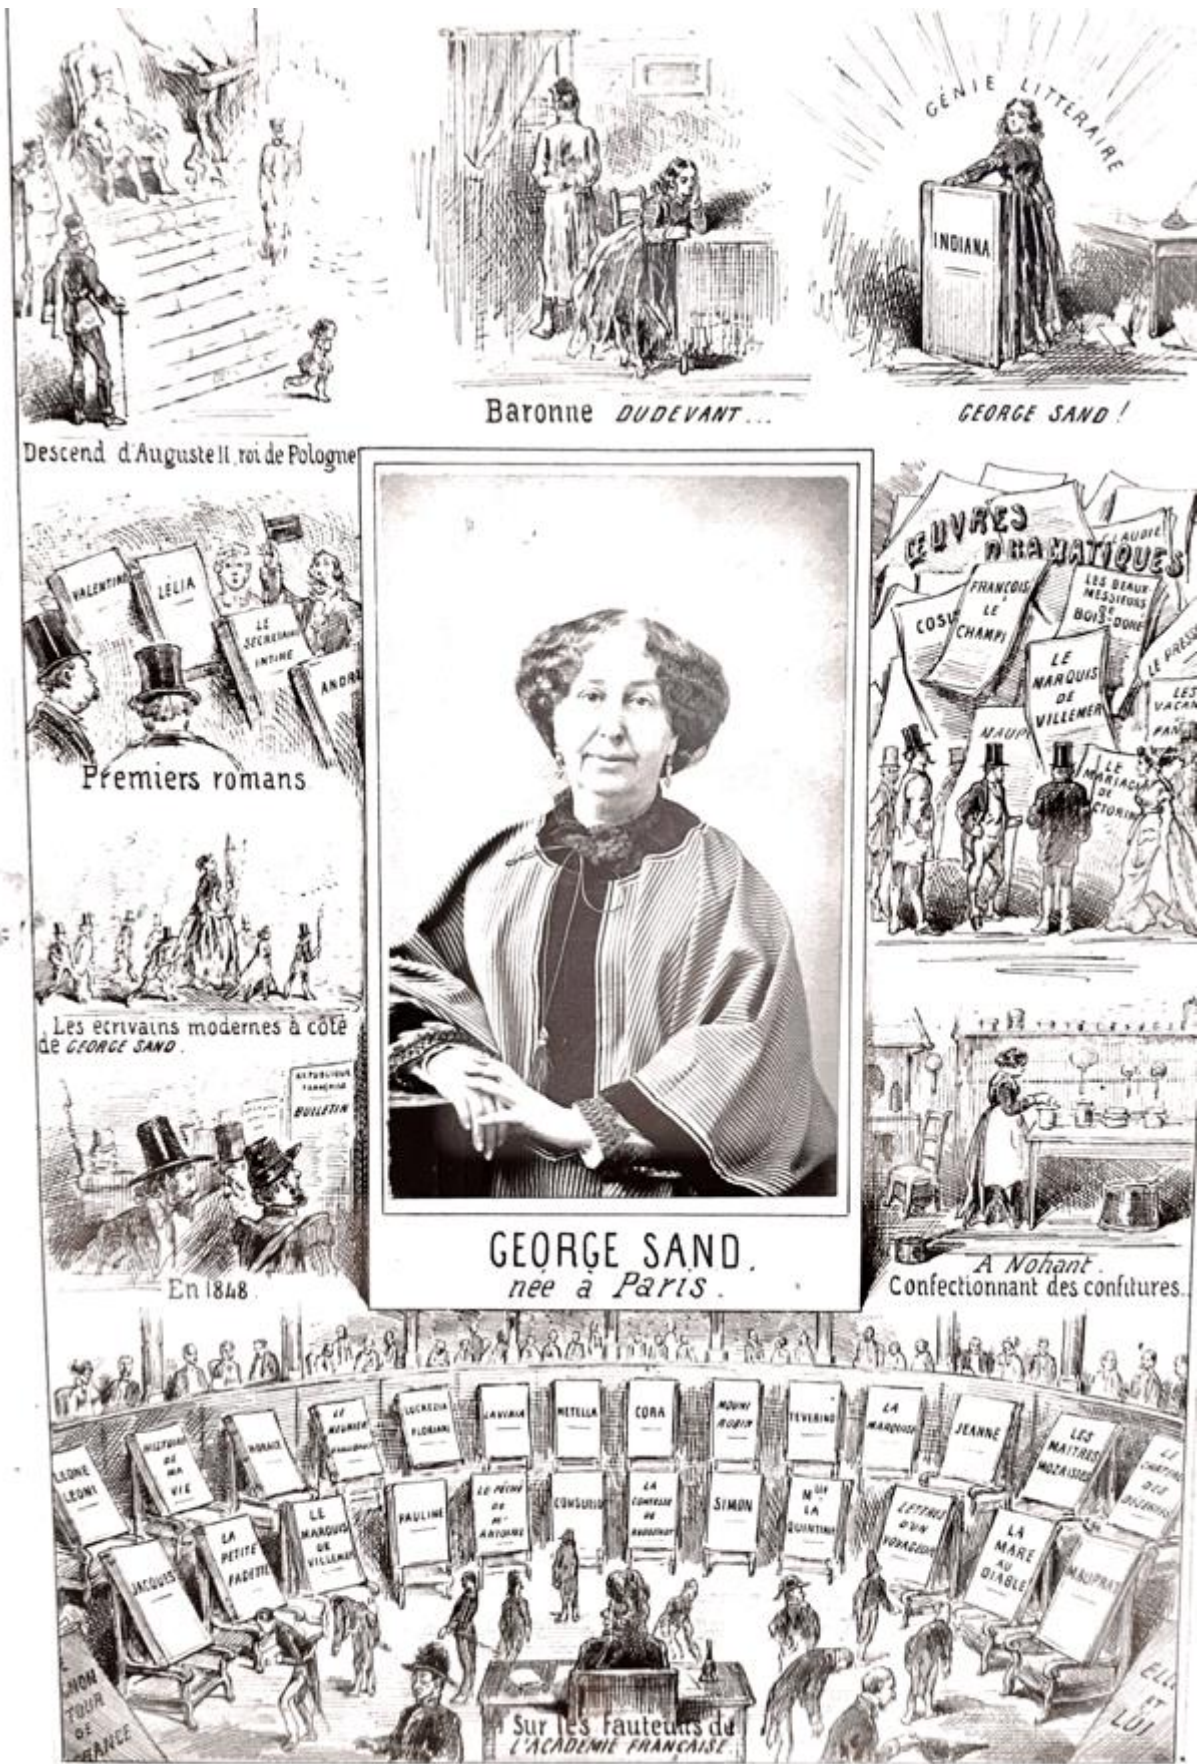 GÉNIE LITTÉRAIRE
INDIANA
Baronne DUDEVANT...
GEORGE SAND !
Descend d'Auguste II, roi de Pologne
VALENTINE
LÉLIA
LE
SECRÉTAIRE
INTIME
ANDRÉ
Premiers romans
ŒUVRES
DRAMATIQUES
CLAUDIE
FRANÇOIS
LE
CHAMPI
LES BEAUX
MESSIEURS
DE
BOIS-DORÉ
COSI
LE
MARQUIS
DE
VILLEMER
LE PRESSO
LES
VACAN
PAN
MAUP
LE
MARIAGE
DE
CTORIN
Les écrivains modernes à côté
de GEORGE SAND.
RÉPUBLIQUE
FRANÇAISE
BULLETIN
En 1848.
GEORGE SAND.
née à Paris.
A Nohant.
Confectionnant des confitures.
LEONE
LEONI
HISTOIRE
DE
MA
VIE
HORACE
LE
MEUNIER
LUCREZIA
FLORIANI
LAVINIA
METELLA
CORA
MOUNY
ROBIN
TEVERINO
LA
MARQUISE
JEANNE
LES
MAITRES
MOZAISTES
LE
CHATEAU
DES
DESERTES
JACQUES
LA
PETITE
FADETTE
LE
MARQUIS
DE
VILLEMER
PAULINE
LE PÉCHÉ
DE
Mr
ANTOINE
CONSUELO
LA
COMTESSE
DE
SIMON
Melle
LA
QUINTINIE
LETTRES
D'UN
VOYAGEUR
LA
MARE
AU
DIABLE
MAUPRAT
MON
TOUR
DE
FRANCE
ELLE
ET
LUI
Sur les Fauteuils de
L'ACADÉMIE FRANÇAISE.